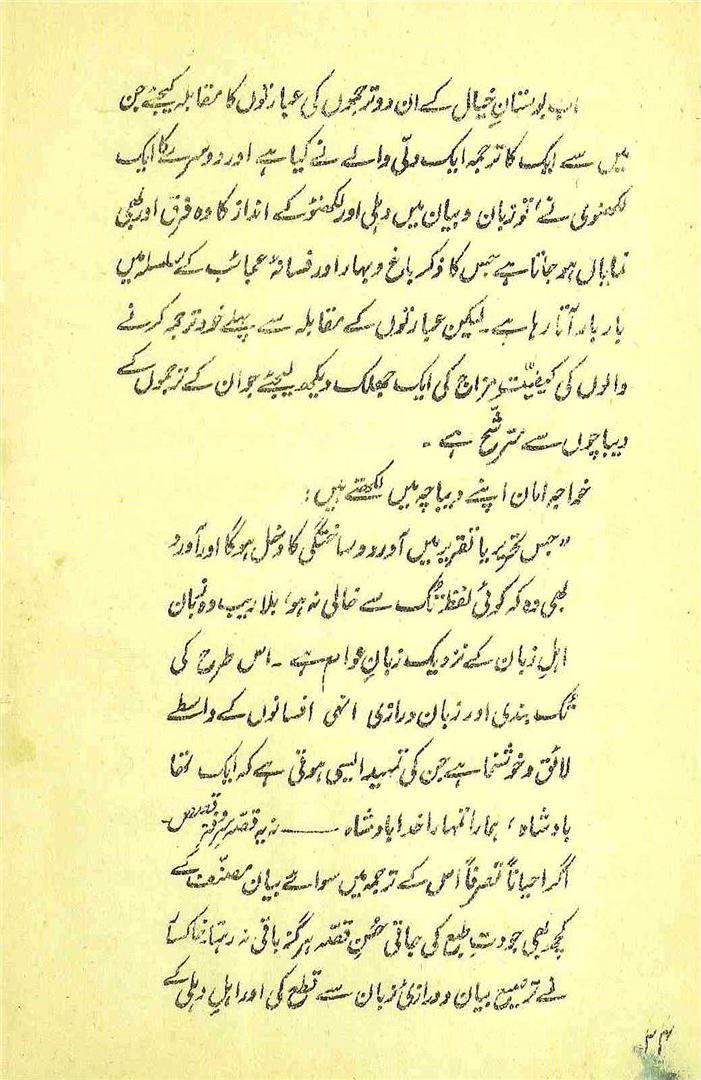 اب بوستانِ خیال کے ان دو ترجموں کی عبارتوں کا مقابلہ کیجئے جن
میں سے ایک کا ترجمہ ایک دلّی والے نے کیا ہے اور دوسرے کا ایک
لکھنوی نے، تو زبان و بیان میں دہلی اور لکھنؤ کے انداز کا وہ فرق اور بھی
نمایاں ہو جاتا ہے جس کا ذکر باغ و بہار اور فسانۂ عجائب کے سلسلہ میں
بار بار آتا رہا ہے۔ لیکن عبارتوں کے مقابلہ سے پہلے خود ترجمہ کرنے
والوں کی کیفیّتِ مزاج کی ایک جھلک دیکھ لیجئے جو ان کے ترجموں کے
دیباچوں سے مترشّح ہے۔
خواجہ امان اپنے دیباچہ میں لکھتے ہیں:
"جس تحریر یا تقریر میں آورد و ساختگی کا دخل ہوگا اور آورد
بھی وہ کہ کوئی لفظ تُک سے خالی نہ ہو، بلاریب وہ زبان
اہلِ زبان کے نزدیک زبانِ عوام ہے۔ اس طرح کی
تُک بندی اور زبان درازی انہی افسانوں کے واسطے
لائق و خوشنما ہے جن کی تمہید ایسی ہوتی ہے کہ ایک تھا
بادشاہ، ہمارا تمہارا خدا بادشاہ —— نہ یہ قصّہ قصص۔
اگر احیاناً تصرفاً اس کے ترجمہ میں سوائے بیان مصنّف کے
کچھ بھی جودتِ طبع کی جاتی حُسنِ قصّہ ہرگز باقی نہ رہتا۔ خاکسار
نے ترصیع بیان و درازیٔ زبان سے قطع کی اور اہلِ دہلی کے
۳۴